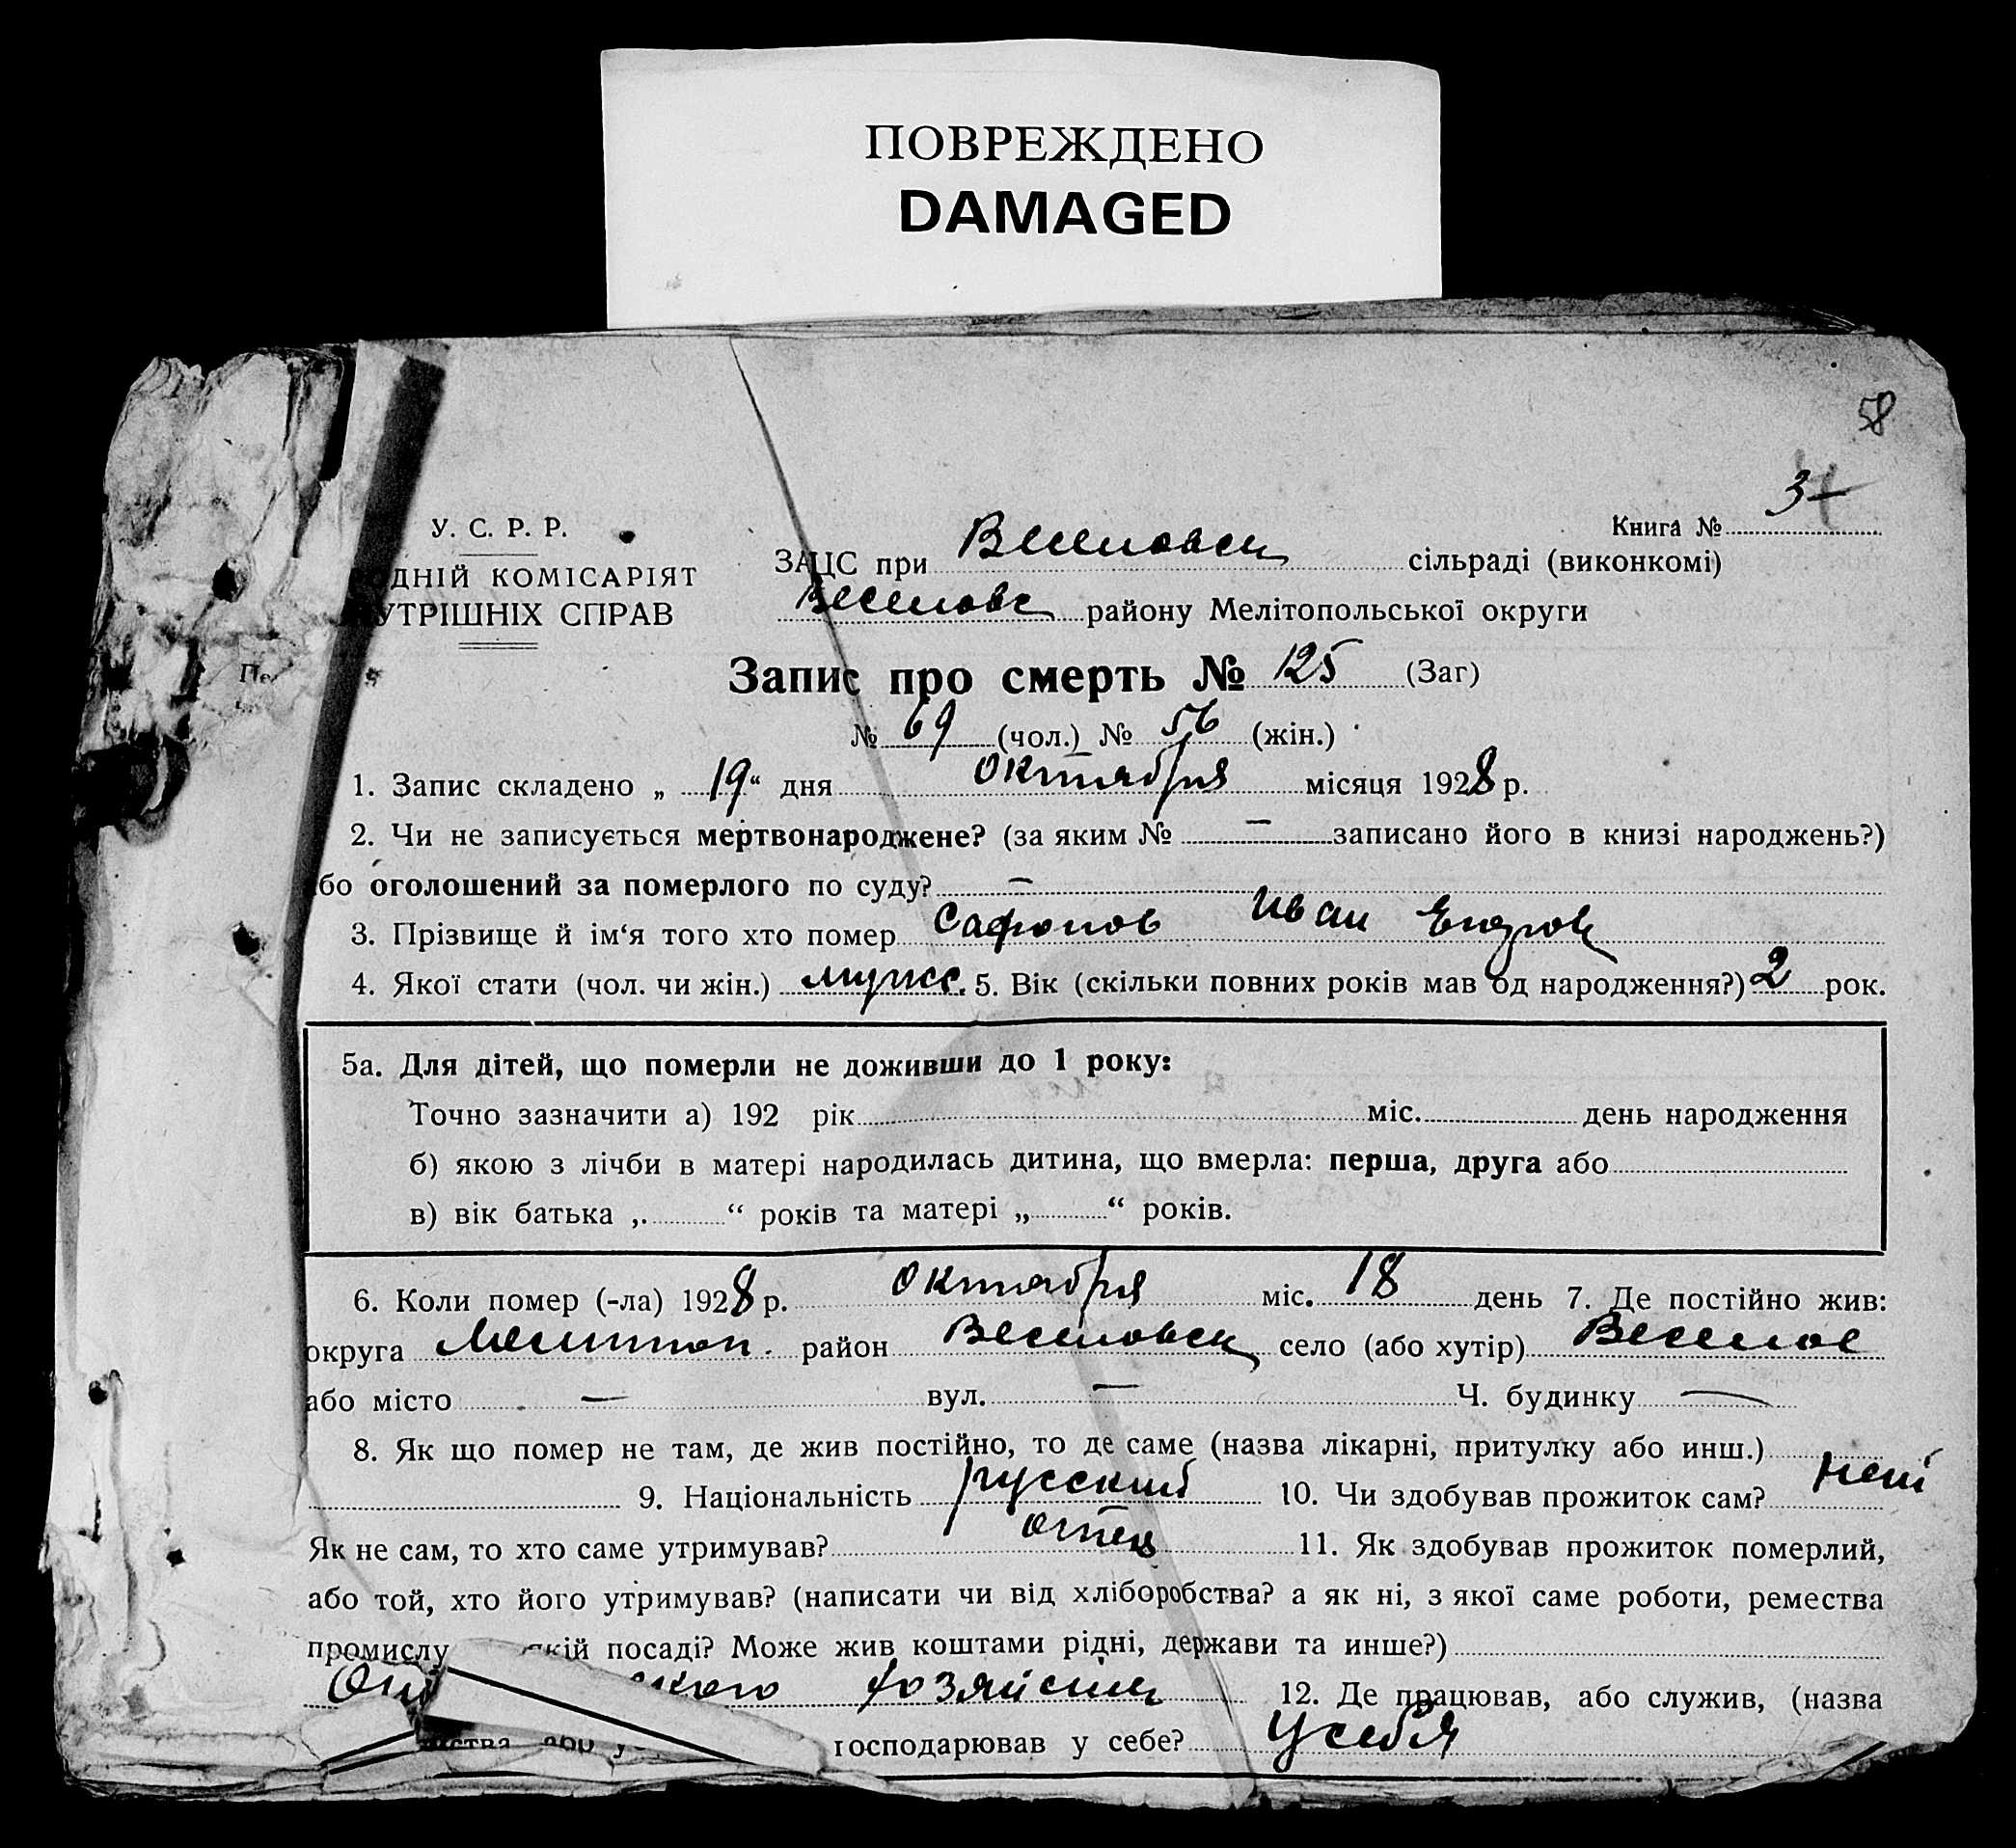 ПОВРЕЖДЕНО
DAMAGED
58
3
Книга №
У. С. Р. Р.
ОДНІЙ КОМІСАРІЯТ
УТРІШНІХ СПРАВ
ЗАЦС при Веселовск сільраді (виконкомі)
Веселовс району Мелітопольської округи
Запис про смерть № 125 (Заг)
№ 69 (чол.) № 56 (жін.)
1. Запис складено „ 19 “ дня октября місяця 1928 р.
2. Чи не записується мертвонароджене? (за яким № — записано його в книзі народжень?)
бо оголошений за померлого по суду? —
3. Прізвище й ім‘я того хто помер Сафонов Иван Егоров
4. Якої стати (чол. чи жін.) мужс. 5. Вік (скільки повних років мав од народження?) 2 рок.
5а. Для дітей, що померли не доживши до 1 року:
Точно зазначити а) 192 рік міс. день народження
б) якою з лічби в матері народилась дитина, що вмерла: перша, друга або
в) вік батька „ “ років та матері „ “ років.
6. Коли помер (-ла) 1928 р. октября міс. 18 день 7. Де постійно жив:
округа Мелитоп. район Веселовск село (або хутір) Веселое
або місто — вул. — Ч. будинку —
8. Як що помер не там, де жив постійно, то де саме (назва лікарні, притулку або инш.)
9. Національність русский 10. Чи здобував прожиток сам? нет
Як не сам, то хто саме утримував? отец 11. Як здобував прожиток померлий,
або той, хто його утримував? (написати чи від хліборобства? а як ні, з якої саме роботи, ремества
промислу кій посаді? Може жив коштами рідні, держави та инше?)
ского хозяйства 12. Де працював, або служив, (назва
ства, або у господарював у себе? У себя